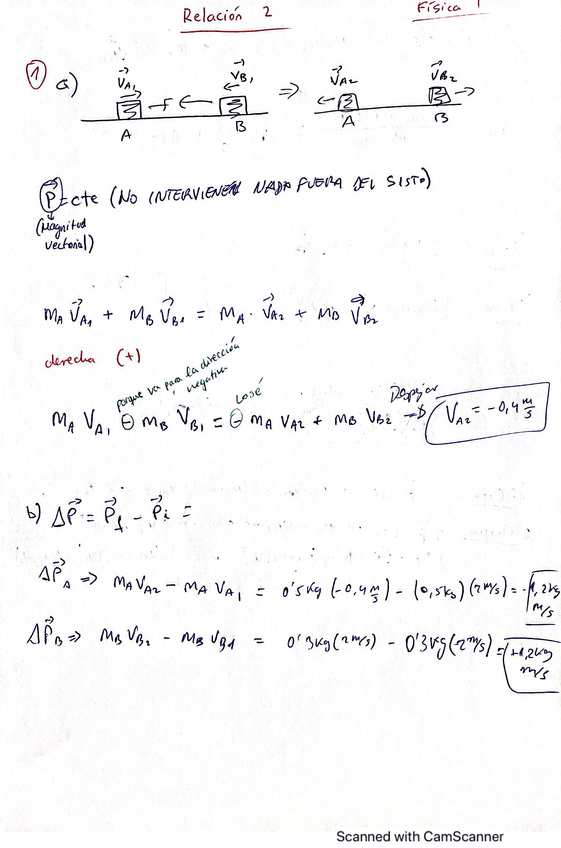 Relación 2
Física 1
① a)
V⃗A₁ V⃗B₁ ⇒ V⃗A2 V⃗B2
A B A B
P⃗=cte (NO INTERVIENEN NADA FUERA DEL SIST)
(Magnitud
vectorial)
mA V⃗A1 + MB V⃗B1 = MA · V⃗A2 + MB V⃗B2
derecha (+)
porque va para la dirección
negativa
Losé
Despejar
MA VA₁ ⊖ MB VB₁ = ⊖ MA VA2 + MB VB2 → VA2 = -0,4 m/s
b) ΔP⃗ = P⃗f - P⃗i =
ΔP⃗A ⇒ MA VA2 - MA VA₁ = 0'5kg (-0,4 m/s) - (0,5kg) (2m/s) = -1,2kg
m/s
ΔP⃗B ⇒ MB VB2 - MB VB1 = 0'3kg (2m/s) - 0'3kg (-2m/s) = +1,2kg
m/s
Scanned with CamScanner